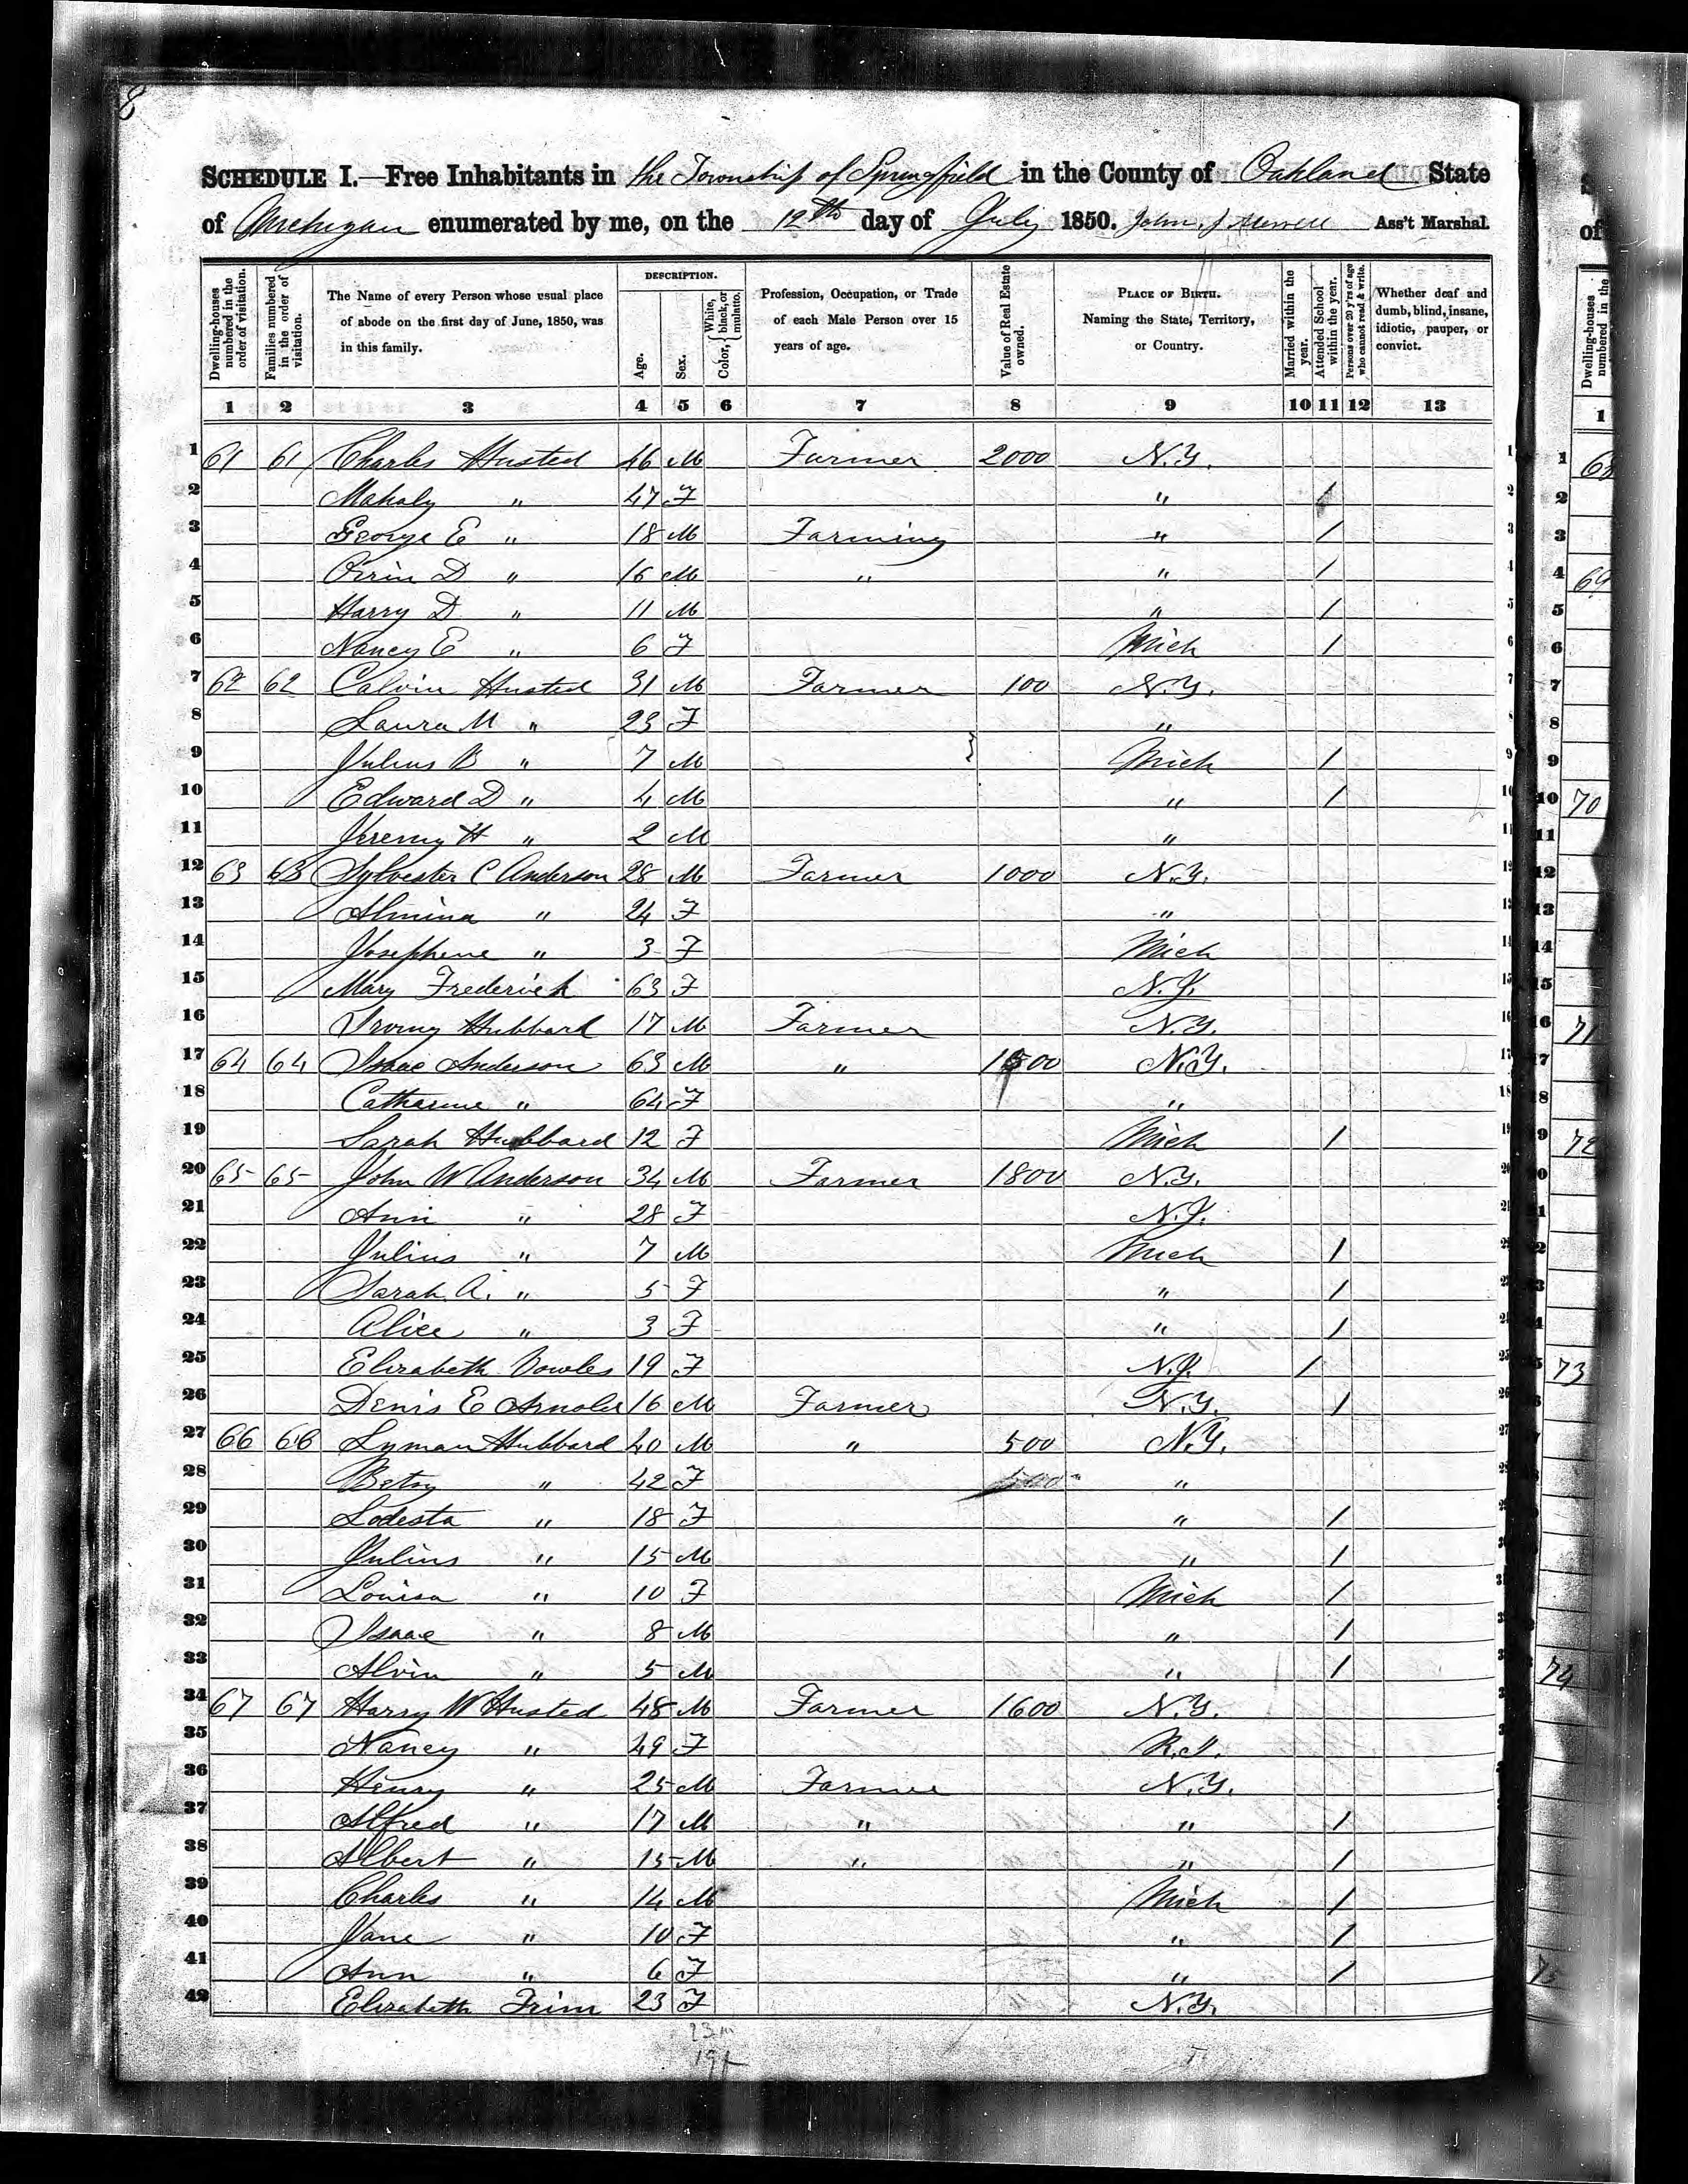 8
SCHEDULE I.—Free Inhabitants in the Township of Springfield in the County of Oakland State
of Michigan enumerated by me, on the 12th day of July 1850. John J Ass't Marshal.
Dwelling-houses numbered in the order of visitation.
Families numbered in the order of visitation.
The Name of every Person whose usual place of abode on the first day of June, 1850, was in this family.
DESCRIPTION.
Age.
Sex.
Color, { White, black, or mulatto.
Profession, Occupation, or Trade of each Male Person over 15 years of age.
Value of Real Estate owned.
PLACE OF BIRTH. Naming the State, Territory, or Country.
Married within the year.
Attended School within the year.
Persons over 20 y'rs of age who cannot read & write.
Whether deaf and dumb, blind, insane, idiotic, pauper, or convict.
1 2 3 4 5 6 7 8 9 10 11 12 13
1 61 61 Charles Husted 46 M Farmer 2000 N.Y.
2 Mahaly " 47 F " /
3 George E " 18 M Farming " /
4 Orrin D " 16 M " " /
5 Harry D " 11 M " /
6 Nancy E " 6 F Mich /
7 62 62 Calvin Husted 31 M Farmer 100 N.Y.
8 Laura M " 23 F "
9 Julius B " 7 M } Mich /
10 Edward D " 4 M " /
11 Jeremy H " 2 M "
12 63 63 Sylvester C Anderson 28 M Farmer 1000 N.Y.
13 Almina " 24 F "
14 Josephene " 3 F Mich
15 Mary Frederick 63 F N.J.
16 Irving Hubbard 17 M Farmer N.Y.
17 64 64 Isaac Anderson 63 M " 1500 N.Y.
18 Catharine " 64 F "
19 Sarah Hubbard 12 F Mich /
20 65 65 John W Anderson 34 M Farmer 1800 N.Y.
21 Ann " 28 F N.J.
22 Julius " 7 M Mich /
23 Sarah A. " 5 F " /
24 Alice " 3 F " /
25 Elizabeth 19 F N.J. /
26 Denis E Arnold 16 M Farmer N.Y. /
27 66 66 Lyman Hubbard 40 M " 500 N.Y.
28 Betsy " 42 F "
29 Lodesta " 18 F " /
30 Julius " 15 M " /
31 Louisa " 10 F Mich /
32 Isaac " 8 M " /
33 Alvin " 5 M " /
34 67 67 Harry W Husted 48 M Farmer 1600 N.Y.
35 Nancy " 49 F R.I.
36 Henry " 25 M Farmer N.Y.
37 Alfred " 17 M " " /
38 Albert " 15 M " " /
39 Charles " 14 M Mich /
40 Jane " 10 F " /
41 Ann " 6 F " /
42 Elizabeth Frim 23 F N.Y.
23 m
19 f